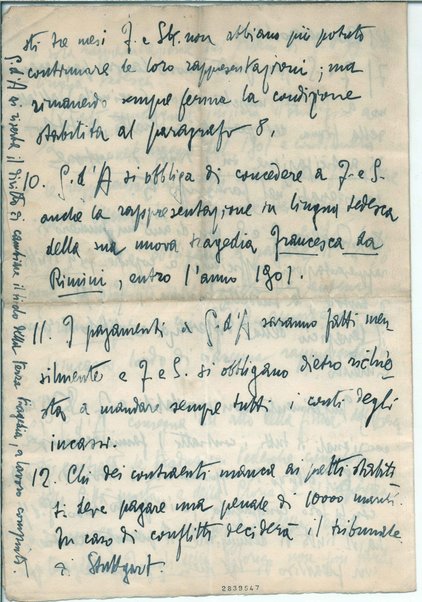 sti tre mesi J. e St. non abbiano più potuto
continuare le loro rappresentazioni; ma
rimanendo sempre ferma la condizione
stabilita al paragrafo 8.
10. G. d'A si obbliga di concedere a J. e S.
anche la rappresentazione in lingua tedesca
della sua nuova tragedia Francesca da
Rimini, entro l'anno 1901.
11. I pagamenti a G. d'A saranno fatti men
silmente e J. e S. si obbligano dietro richie
sta, a mandare sempre tutti i conti degli
incassi.
12. Chi dei contraenti manca ai patti stabiliti
si deve pagare una penale di 10000 marchi.
In caso di conflitti deciderà il tribunale
di Stuttgart
G. d'A si riserva il diritto di cambiare il titolo della terza tragedia, a lavoro compiuto.
2839547